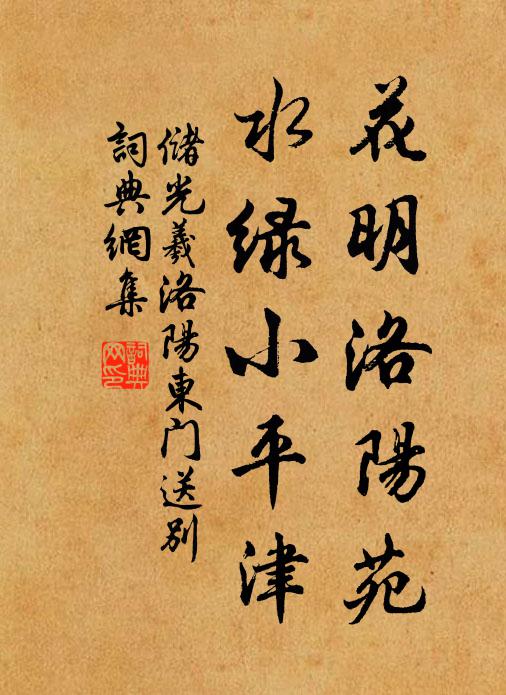 花明洛陽苑
水绿小平津
儲光羲洛陽東门送别
詞典網集
詞典网印